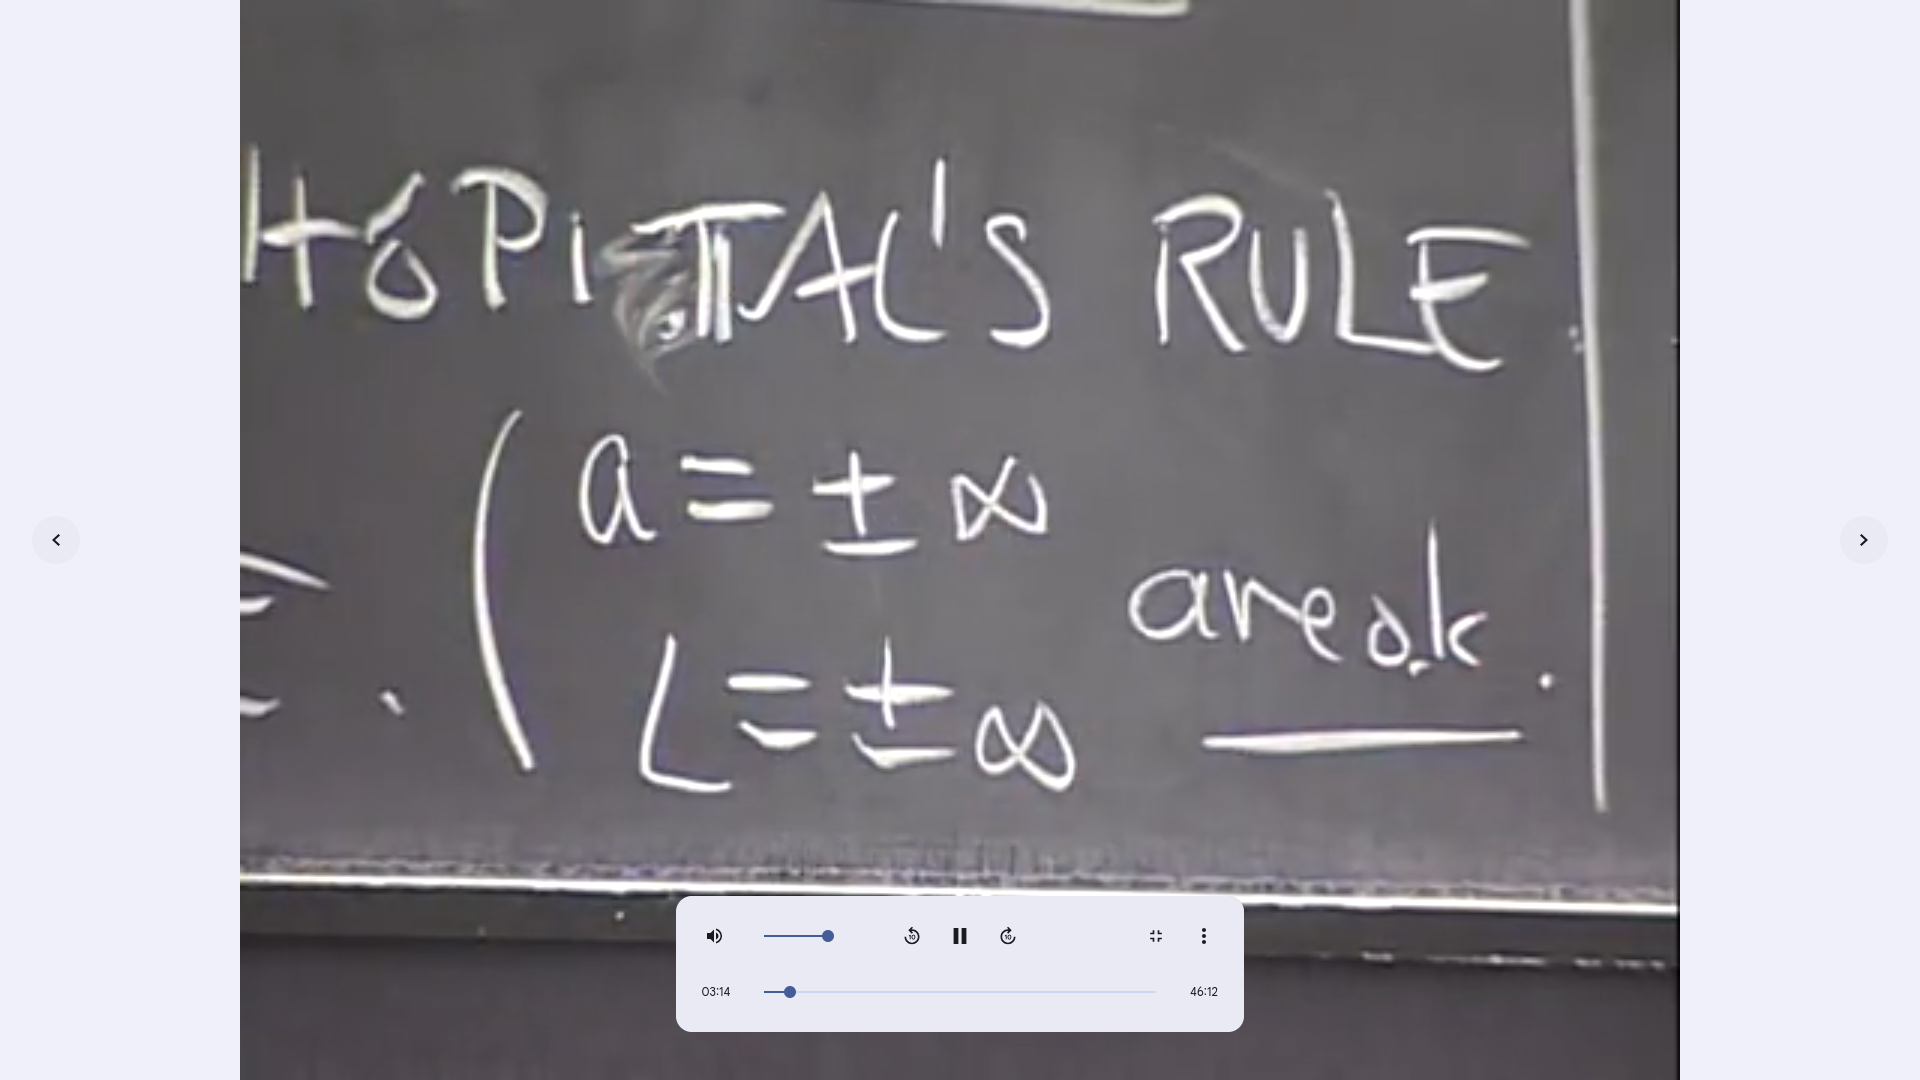 HôPiTAL'S RULE
( a = ± ∞
L = ± ∞
are o.k.
03:14
46:12